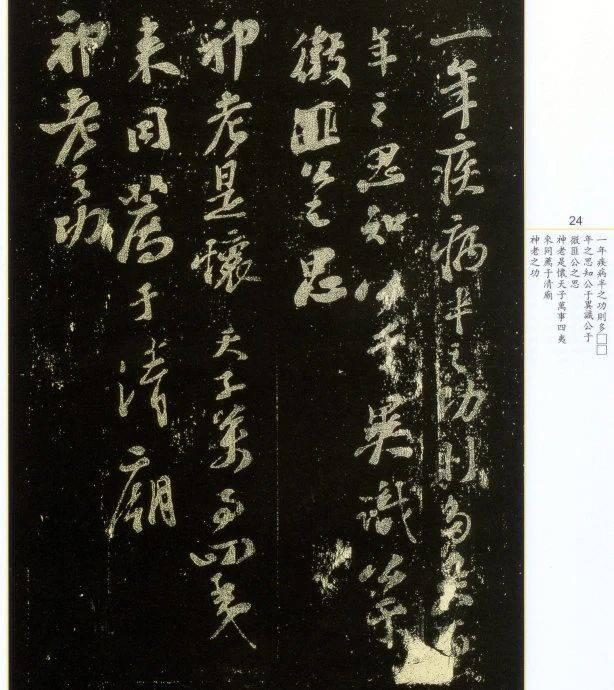 一年疾病半之功則多
年之思知公于異識公于
微匪公之思
神老是懷天子萬事四夷
來同薦于清廟
神老之功
24
一年疾病半之功則多□□
年之思知公于異識公于
微匪公之思
神老是懷天子萬事四夷
來同薦于清廟
神老之功